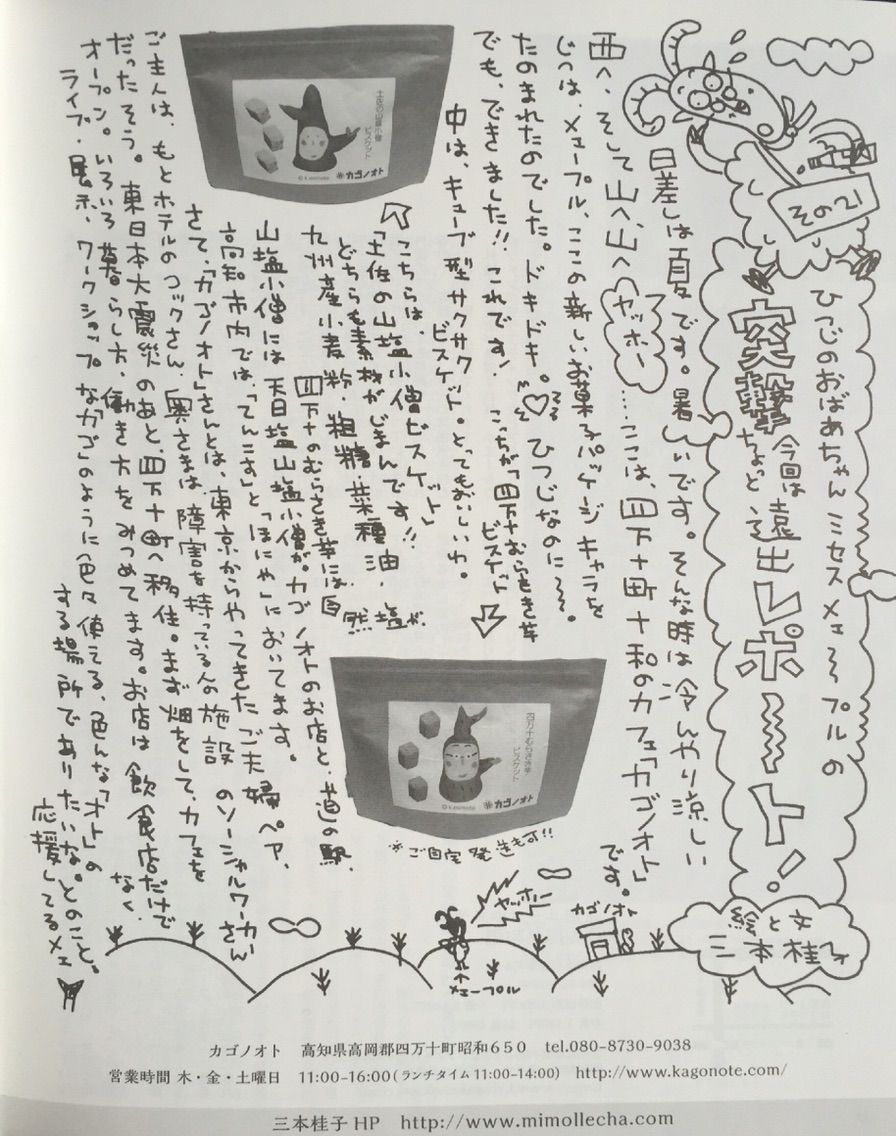 その21
ひつじのおばあちゃん ミセスメェ〜プルの
突撃 今回はちょっと遠出レポ〜ト!
絵と文 三本桂子
日差しは夏々です。暑いです。そんな時は冷んやり涼しい
西へ、そして山へ、山へ ヤッホー ……ここは、四万十町十和のカフェ「カゴノオト」です。
じつは、メェープル、ここの新しいお菓子パッケージキャラを
たのまれたのでした。ドキドキ。♡ ひつじなのに〜〜。
でも、できました!! これです! こっちが「四万十むらさき芋ビスケット」
中は、キューブ型サクサクビスケット。とってもおいしいわ。
こちらは、
「土佐の山塩小僧ビスケット」
どちらも素材がじまんです!!
九州産小麦粉・粗糖・菜種油・
四万十のむらさき芋には自然塩が、
山塩小僧には天日塩山塩小僧が。カゴノオトのお店と、道の駅、
高知市内では、「てんこす」と「ほにや」においてます。
さて、「カゴノオト」さんとは、東京からやってきたご夫婦ペア、
ご主人は、もとホテルのコックさん、奥さまは、障害を持っている人の施設のソーシャルワーカーさん
だったそう。東日本大震災のあと、四万十町へ移住。まず畑をして、カフェを
オープン。いろいろ暮らし方、働き方をみつめてます。お店は飲食店だけでなく、
ライブ・展示、ワークショップなど「カゴ」のように色々使える、色んな「オト」の
する場所でありたいな。とのこと。
応援してるメェ
土佐の山塩小僧
ビスケット
©k.mimoto
カゴノオト
四万十むらさき芋
ビスケット
©k.mimoto
カゴノオト
※ご自宅発送も可!!
ヤッホー
メェープル
カゴノオト
カゴノオト 高知県高岡郡四万十町昭和650 tel.080-8730-9038
営業時間 木・金・土曜日 11:00-16:00(ランチタイム11:00-14:00) http://www.kagonote.com/
三本桂子HP http://www.mimollecha.com